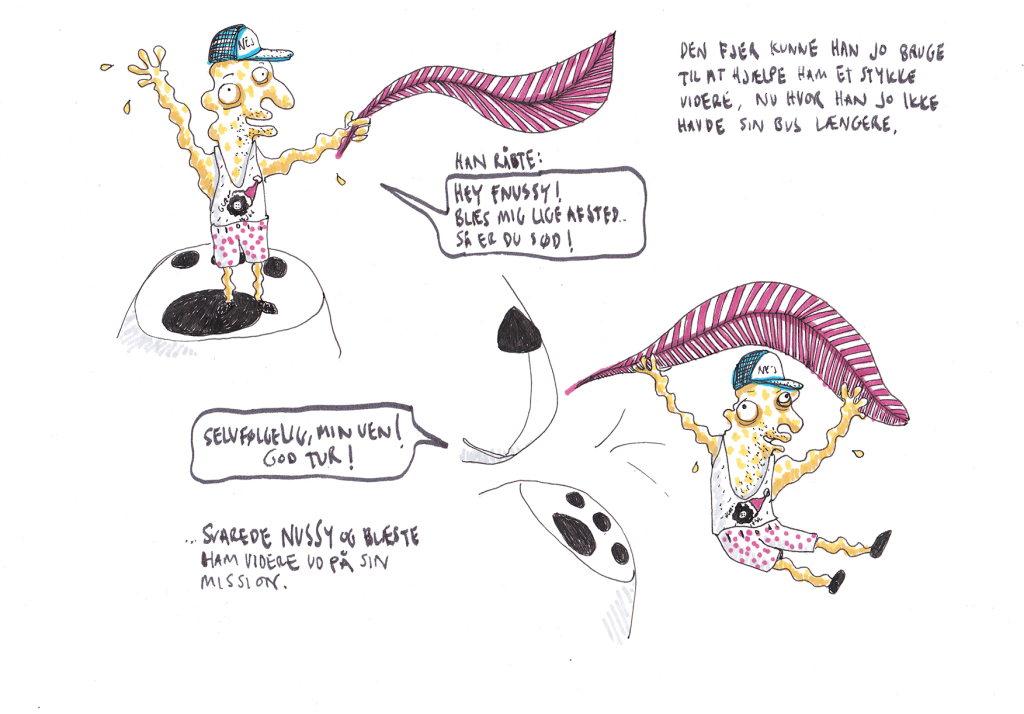 NEJ
DEN FJER KUNNE HAN JO BRUGE
TIL AT HJÆLPE HAM ET STYKKE
VIDERE, NU HVOR HAN JO IKKE
HAVDE SIN BUS LÆNGERE.
HAN RÅBTE:
HEY FNUSSY!
BLÆS MIG LIGE AFSTED..
SÅ ER DU SØD!
NEJ
SELVFØLGELIG, MIN VEN!
GOD TUR!
... SVAREDE NUSSY OG BLÆSTE
HAM VIDERE UD PÅ SIN
MISSION.